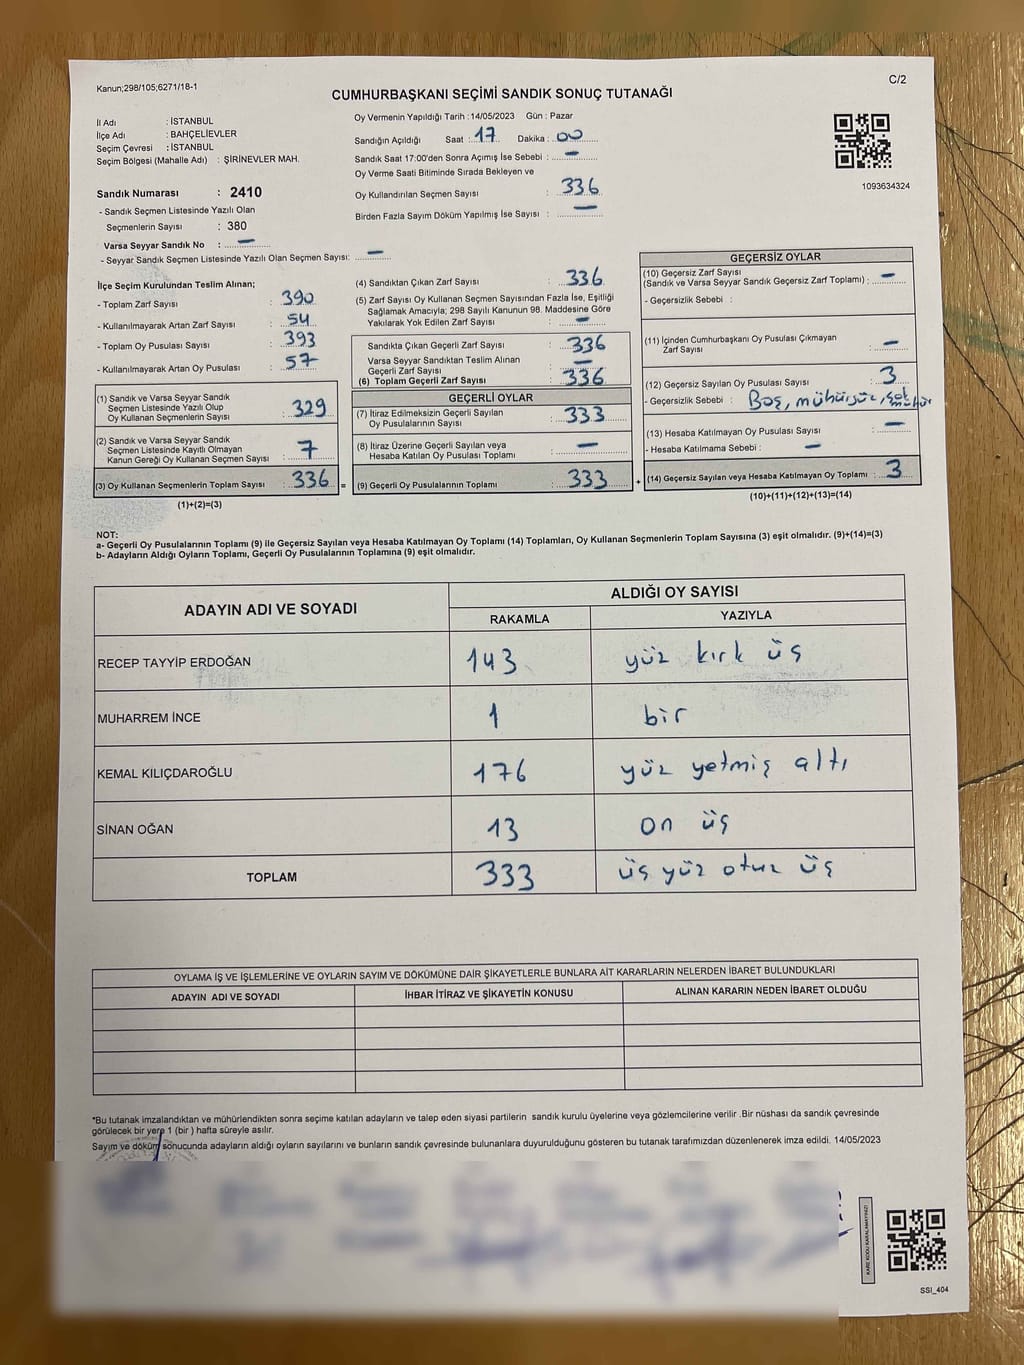 Kanun;298/105;6271/18-1
C/2
CUMHURBAŞKANI SEÇİMİ SANDIK SONUÇ TUTANAĞI
İl Adı : İSTANBUL
İlçe Adı : BAHÇELİEVLER
Seçim Çevresi : İSTANBUL
Seçim Bölgesi (Mahalle Adı) : ŞİRİNEVLER MAH.
Sandık Numarası : 2410
- Sandık Seçmen Listesinde Yazılı Olan
Seçmenlerin Sayısı : 380
Varsa Seyyar Sandık No : —
- Seyyar Sandık Seçmen Listesinde Yazılı Olan Seçmen Sayısı: —
Oy Vermenin Yapıldığı Tarih : 14/05/2023 Gün : Pazar
Sandığın Açıldığı Saat : 17 Dakika : 00
Sandık Saat 17:00'den Sonra Açımış İse Sebebi : —
Oy Verme Saati Bitiminde Sırada Bekleyen ve
Oy Kullandırılan Seçmen Sayısı : 336
Birden Fazla Sayım Döküm Yapılmış İse Sayısı : —
1093634324
İlçe Seçim Kurulundan Teslim Alınan;
- Toplam Zarf Sayısı : 390
- Kullanılmayarak Artan Zarf Sayısı : 54
- Toplam Oy Pusulası Sayısı : 393
- Kullanılmayarak Artan Oy Pusulası : 57
(1) Sandık ve Varsa Seyyar Sandık
Seçmen Listesinde Yazılı Olup
Oy Kullanan Seçmenlerin Sayısı : 329
(2) Sandık ve Varsa Seyyar Sandık
Seçmen Listesinde Kayıtlı Olmayan
Kanun Gereği Oy Kullanan Seçmen Sayısı : 7
(3) Oy Kullanan Seçmenlerin Toplam Sayısı : 336 =
(1)+(2)=(3)
(4) Sandıktan Çıkan Zarf Sayısı : 336
(5) Zarf Sayısı Oy Kullanan Seçmen Sayısından Fazla İse, Eşitliği
Sağlamak Amacıyla; 298 Sayılı Kanunun 98. Maddesine Göre
Yakılarak Yok Edilen Zarf Sayısı : —
Sandıkta Çıkan Geçerli Zarf Sayısı : 336
Varsa Seyyar Sandıktan Teslim Alınan
Geçerli Zarf Sayısı : —
(6) Toplam Geçerli Zarf Sayısı : 336
GEÇERLİ OYLAR
(7) İtiraz Edilmeksizin Geçerli Sayılan
Oy Pusulalarının Sayısı : 333
(8) İtiraz Üzerine Geçerli Sayılan veya
Hesaba Katılan Oy Pusulası Toplamı : —
(9) Geçerli Oy Pusulalarının Toplamı : 333 +
GEÇERSİZ OYLAR
(10) Geçersiz Zarf Sayısı
(Sandık ve Varsa Seyyar Sandık Geçersiz Zarf Toplamı) : —
- Geçersizlik Sebebi :
(11) İçinden Cumhurbaşkanı Oy Pusulası Çıkmayan
Zarf Sayısı : —
(12) Geçersiz Sayılan Oy Pusulası Sayısı : 3
- Geçersizlik Sebebi : Boş, mühürsüz, çok mühür
(13) Hesaba Katılmayan Oy Pusulası Sayısı : —
- Hesaba Katılmama Sebebi : —
(14) Geçersiz Sayılan veya Hesaba Katılmayan Oy Toplamı : 3
(10)+(11)+(12)+(13)=(14)
NOT:
a- Geçerli Oy Pusulalarının Toplamı (9) ile Geçersiz Sayılan veya Hesaba Katılmayan Oy Toplamı (14) Toplamları, Oy Kullanan Seçmenlerin Toplam Sayısına (3) eşit olmalıdır. (9)+(14)=(3)
b- Adayların Aldığı Oyların Toplamı, Geçerli Oy Pusulalarının Toplamına (9) eşit olmalıdır.
ADAYIN ADI VE SOYADI ALDIĞI OY SAYISI
RAKAMLA YAZIYLA
RECEP TAYYİP ERDOĞAN 143 yüz kırk üç
MUHARREM İNCE 1 bir
KEMAL KILIÇDAROĞLU 176 yüz yetmiş altı
SİNAN OĞAN 13 on üç
TOPLAM 333 üç yüz otuz üç
OYLAMA İŞ VE İŞLEMLERİNE VE OYLARIN SAYIM VE DÖKÜMÜNE DAİR ŞİKAYETLERLE BUNLARA AİT KARARLARIN NELERDEN İBARET BULUNDUKLARI
ADAYIN ADI VE SOYADI İHBAR İTİRAZ VE ŞİKAYETİN KONUSU ALINAN KARARIN NEDEN İBARET OLDUĞU
*Bu tutanak imzalandıktan ve mühürlendikten sonra seçime katılan adayların ve talep eden siyasi partilerin sandık kurulu üyelerine veya gözlemcilerine verilir .Bir nüshası da sandık çevresinde
görülecek bir yere 1 (bir ) hafta süreyle asılır.
Sayım ve döküm sonucunda adayların aldığı oyların sayılarını ve bunların sandık çevresinde bulunanlara duyurulduğunu gösteren bu tutanak tarafımızdan düzenlenerek imza edildi. 14/05/2023
KARE KODU KARALAMAYINIZ!
SSİ_404